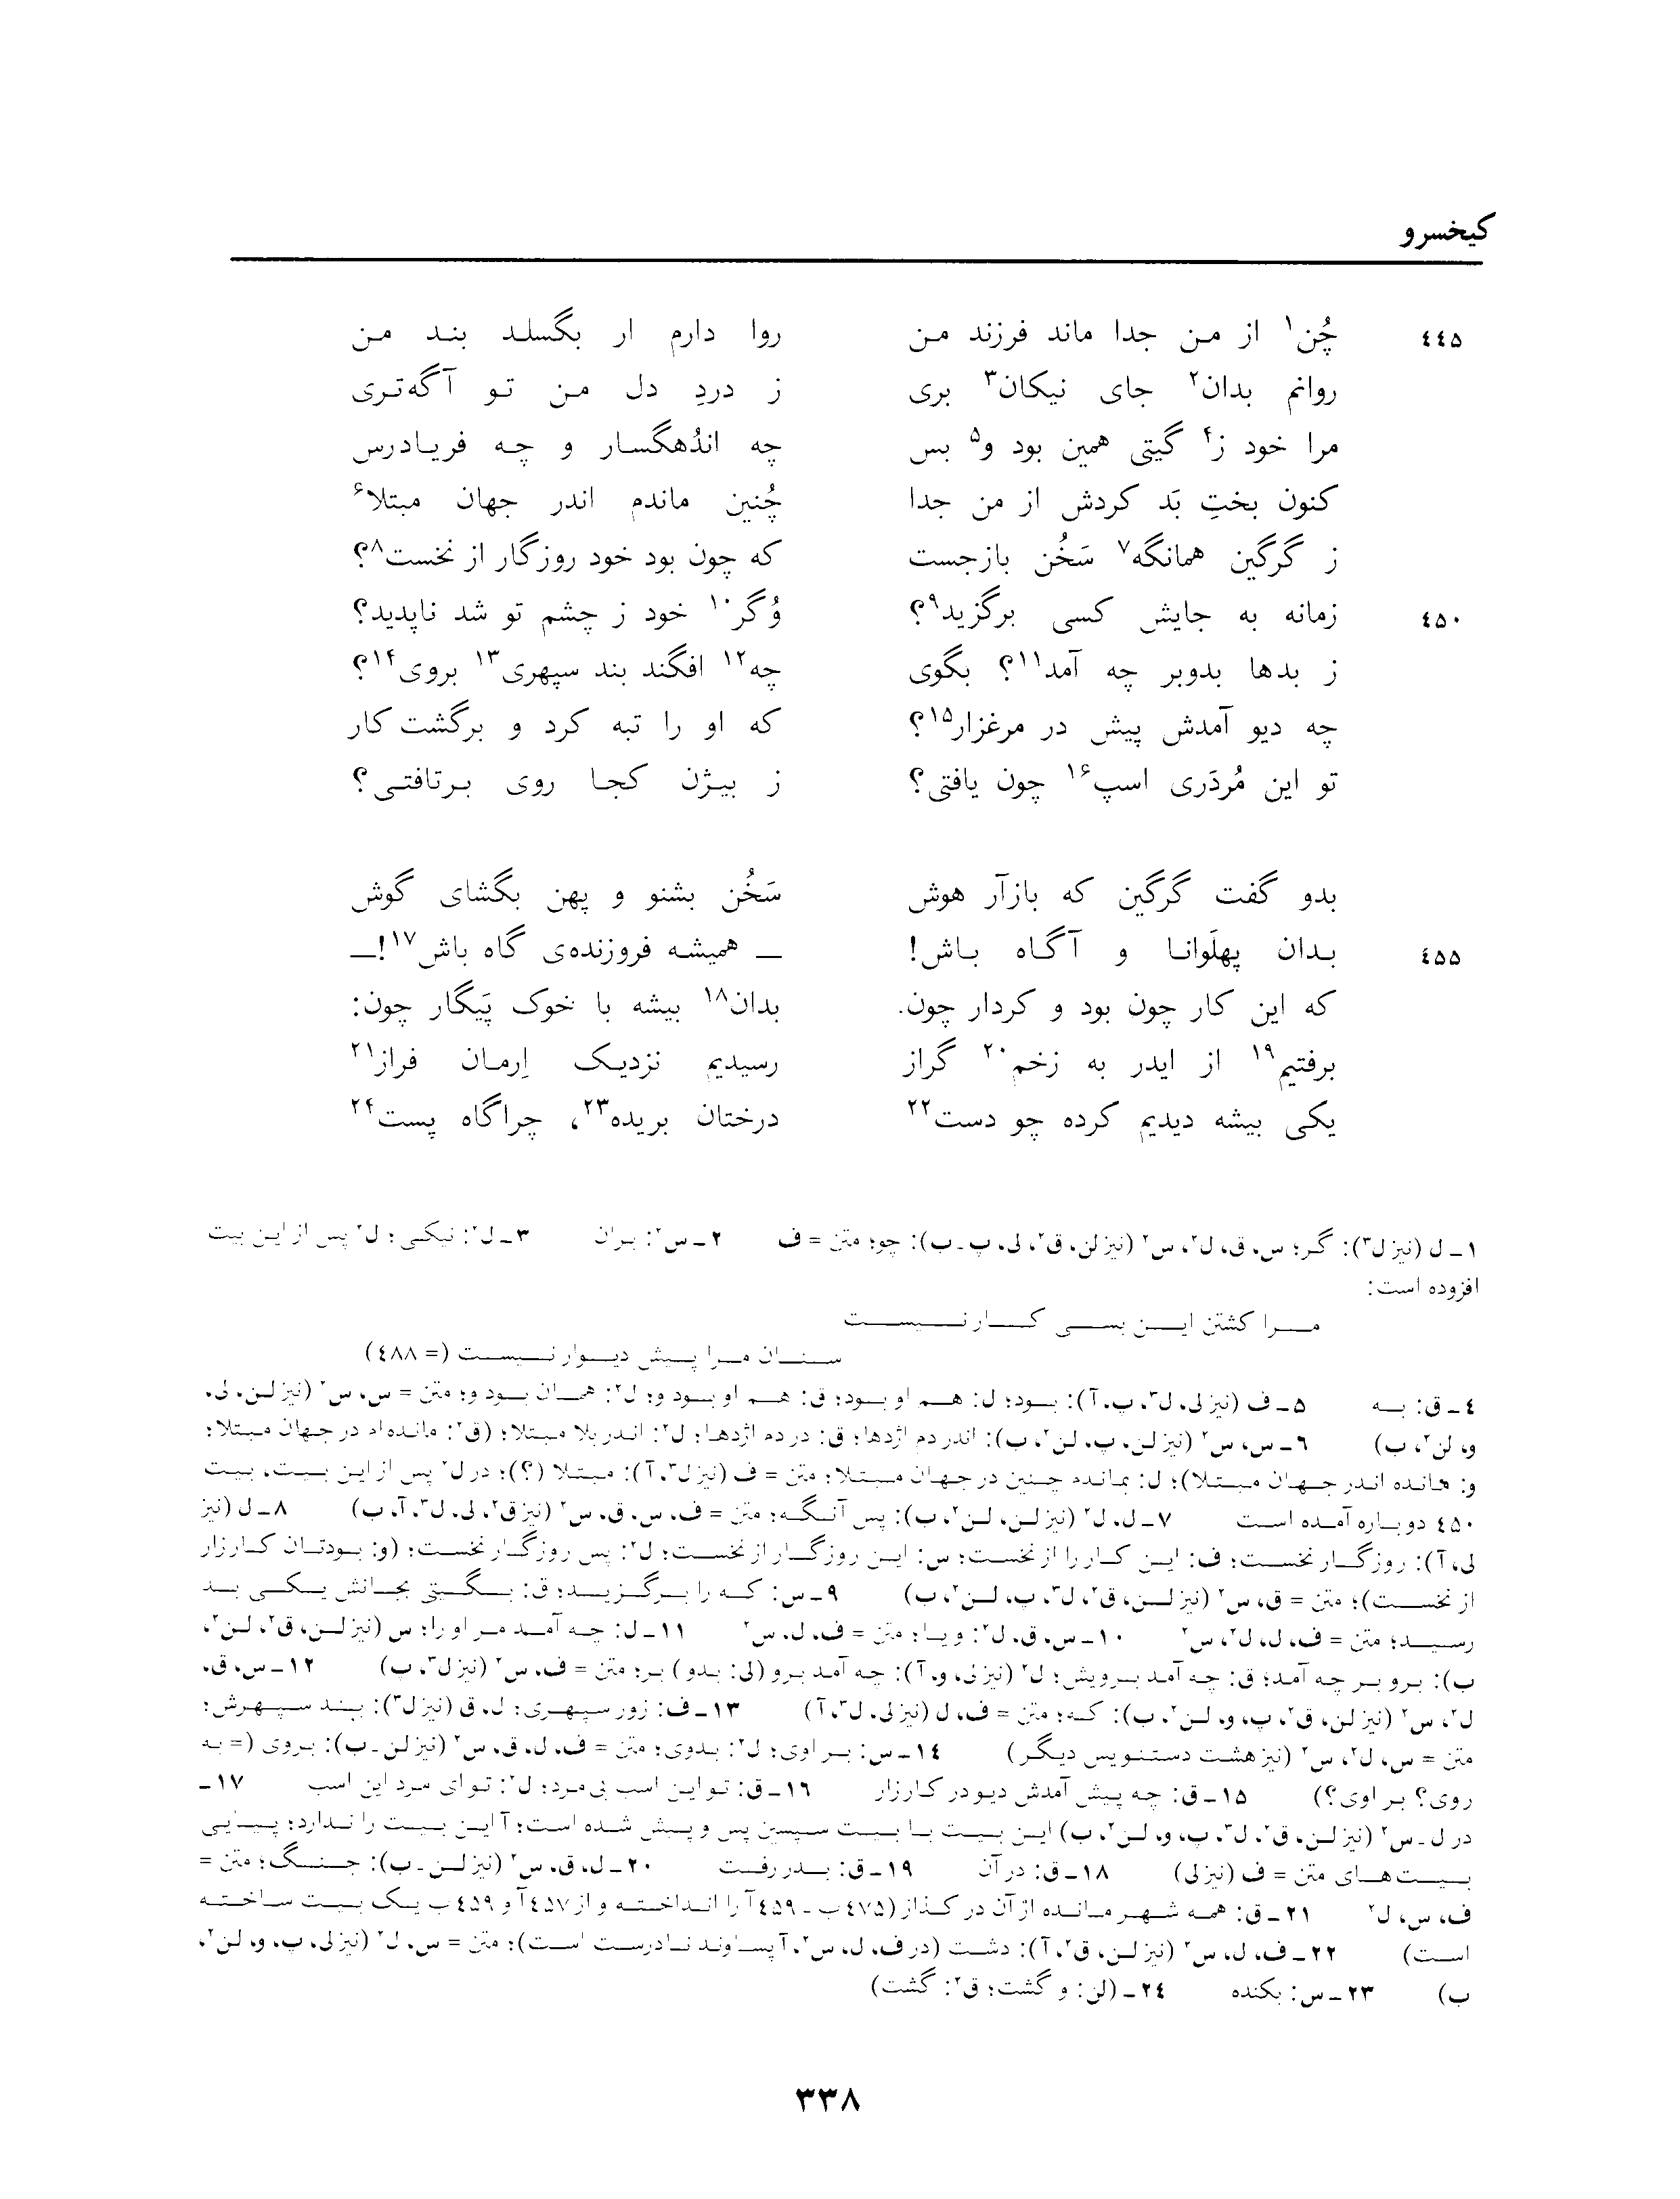 کیخسرو
٤٤۵ چُن۱ از من جدا ماند فرزند من روا دارم ار بگسلد بند من
روانم بدان۲ جای نیکان۳ بری ز دردِ دل من تو آگه‌تری
مرا خود ز۴ گیتی همین بود و۵ بس چه اندُهگسار و چه فریادرس
کنون بختِ بَد کردش از من جدا چُنین ماندم اندر جهان مبتلا۶
ز گرگین همانگه۷ سَخُن بازجست که چون بود خود روزگار از نخست۸؟
٤۵۰ زمانه به جایش کسی برگزید۹؟ وُگر۱۰ خود ز چشم تو شد ناپدید؟
ز بدها بدوبر چه آمد۱۱؟ بگوی چه۱۲ افگند بند سپهری۱۳ بروی۱۴؟
چه دیو آمدش پیش در مرغزار۱۵؟ که او را تبه کرد و برگشت کار
تو این مُردَری اسپ۱۶ چون یافتی؟ ز بیژن کجا روی برتافتی؟
بدو گفت گرگین که بازآر هوش سَخُن بشنو و پهن بگشای گوش
٤۵۵ بدان پهلَوانا و آگاه باش! ـ همیشه فروزنده‌ی گاه باش۱۷!ـ
که این کار چون بود و کردار چون. بدان۱۸ بیشه با خوک پَیگار چون:
برفتیم۱۹ از ایدر به زخم۲۰ گراز رسیدیم نزدیک اِرمان فراز۲۱
یکی بیشه دیدیم کرده چو دست۲۲ درختان بریده۲۳، چراگاه پست۲۴
۱ـ ل (نیز ل۳): گر؛ س، ق، ل۲، س۲ (نیز لن، ق۲، لی، پ ـ ب): چو؛ متن = ف ۲ـ س۲: بران ۳ـ ل۲: نیکی؛ ل۲ پس از این بیت
افزوده است:
مرا کشتن این بسی کار نیست
سنان مرا پیش دیوار نیست (= ٤۸۸)
٤ـ ق: به ۵ـ ف (نیز لی، ل۳، پ، آ): بود؛ ل: هم او بود؛ ق: هم او بود و؛ ل۲: همان بود و؛ متن = س، س۲ (نیز لن، لی،
و، لن۲، ب) ٦ـ س، س۲ (نیز لن، پ، لن۲، ب): اندر دم اژدها؛ ق: در دم اژدها؛ ل۲: اندر بلا مبتلا؛ (ق۲: مانده‌ام در جهان مبتلا؛
و: مانده اندر جهان مبتلا)؛ ل: بماندم چنین در جهان مبتلا؛ متن = ف (نیز ل۳، آ): مبتلا (؟)؛ در ل۲ پس از این بیت، بیت
٤۵۰ دوباره آمده است ۷ـ ل، ل۲ (نیز لن، لن۲، ب): پس آنگه؛ متن = ف، س، ق، س۲ (نیز ق۲، لی، ل۳، آ، ب) ۸ـ ل (نیز
لی، آ): روزگار نخست؛ ف: این کار را از نخست؛ س: این روزگار از نخست؛ ل۲: پس روزگار نخست؛ (و: بودتان کارزار
از نخست)؛ متن = ق، س۲ (نیز لن، ق۲، ل۳، پ، لن۲، ب) ۹ـ س: که را برگزید؛ ق: بگیتی بجانش یکی بد
رسید؛ متن = ف، ل، ل۲، س۲ ۱۰ـ س، ق، ل۲: و یا؛ متن = ف، ل، س۲ ۱۱ـ ل: چه آمد مر او را؛ س (نیز لن، ق۲، لن۲،
ب): برو بر چه آمد؛ ق: چه آمد برویش؛ ل۲ (نیز لی، و، آ): چه آمد برو (لی: بدو) بر؛ متن = ف، س۲ (نیز ل۳، ب) ۱۲ـ س، ق،
ل۲، س۲ (نیز لن، ق۲، پ، و، لن۲، ب): که؛ متن = ف، ل (نیز لی، ل۳، آ) ۱۳ـ ف: زور سپهری؛ ل، ق (نیز ل۳): ببند سپهرش؛
متن = س، ل۲، س۲ (نیز هشت دستنویس دیگر) ۱٤ـ س: بر اوی؛ ل۲: بدوی؛ متن = ف، ل، ق، س۲ (نیز لن ـ ب): بروی (= به
روی؟ بر اوی؟) ۱۵ـ ق: چه پیش آمدش دیو در کارزار ۱٦ـ ق: تو این اسب بی مرد؛ ل۲: تو ای مرد این اسب ۱۷ـ
در ل ـ س۲ (نیز لن، ق۲، ل۳، پ، و، لن۲، ب) این بیت با بیت سپسین پس و پیش شده است؛ آ این بیت را ندارد؛ پیاپی
بیت‌های متن = ف (نیز لی) ۱۸ـ ق: در آن ۱۹ـ ق: بدر رفت ۲۰ـ ل، ق، س۲ (نیز لن ـ ب): جنگ؛ متن =
ف، س، ل۲ ۲۱ـ ق: همه شهر مانده از آن در گداز (٤۷۵ب ـ ٤۵۹آ را انداخته و از ٤۵۷آ و ٤۵۹ب یک بیت ساخته
است) ۲۲ـ ف، ل، س۲ (نیز لن، ق۲، آ): دشت (در ف، ل، س۲، آ پساوند نادرست است)؛ متن = س، ل۲ (نیز لی، پ، و، لن۲،
ب) ۲۳ـ س: بکنده ۲٤ـ (لن: و گشت؛ ق۲: گشت)
۳۳۸